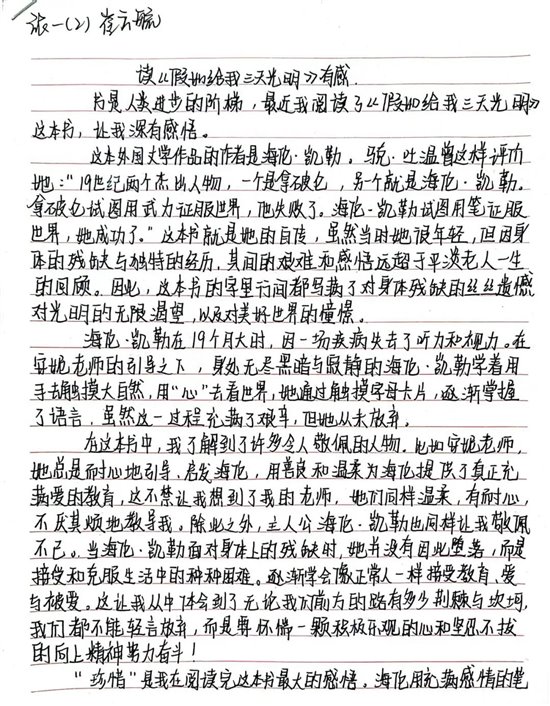 张一(2) 崔云毓
读《假如给我三天光明》有感.
书是人类进步的阶梯，最近我阅读了《假如给我三天光明》
这本书，让我深有感悟。
这本外国文学作品的作者是海伦·凯勒。马克·吐温曾这样评价
她："19世纪两个杰出人物，一个是拿破仑，另一个就是海伦·凯勒。
拿破仑试图用武力征服世界，他失败了。海伦·凯勒试图用笔征服
世界，她成功了。"这本书就是她的自传，虽然当时她很年轻，但因身
体的残缺与独特的经历，其间的艰难和感悟远超于平淡老人一生
的回顾。因此，这本书的字里行间都写满了对身体残缺的丝丝遗憾
对光明的无限渴望，以及对美好世界的憧憬。
海伦·凯勒在19个月大时，因一场疾病失去了听力和视力。在
安妮老师的引导之下，身处无尽黑暗与寂静的海伦·凯勒学着用
手去触摸大自然，用"心"去看世界，她通过触摸字母卡片，逐渐掌握
了语言，虽然这一过程充满了艰辛，但她从未放弃。
在这本书中，我了解到了许多令人敬佩的人物。比如安妮老师，
她总是耐心地引导、启发海伦，用善良和温柔为海伦提供了真正充
满爱的教育，这不禁让我想到了我的老师，她们同样温柔，有耐心，
不厌其烦地教导我。除此之外，主人公海伦·凯勒也同样让我敬佩
不已。当海伦·凯勒面对身体上的残缺时，她并没有因此堕落，而是
接受和克服生活中的种种困难。逐渐学会像正常人一样接受教育、爱
与被爱。这让我从中体会到了无论我们前方的路有多少荆棘与坎坷，
我们都不能轻言放弃，而是要怀揣一颗积极乐观的心和坚忍不拔
的向上精神努力奋斗！
"珍惜"是我在阅读完这本书最大的感悟。海伦用充满感情的笔